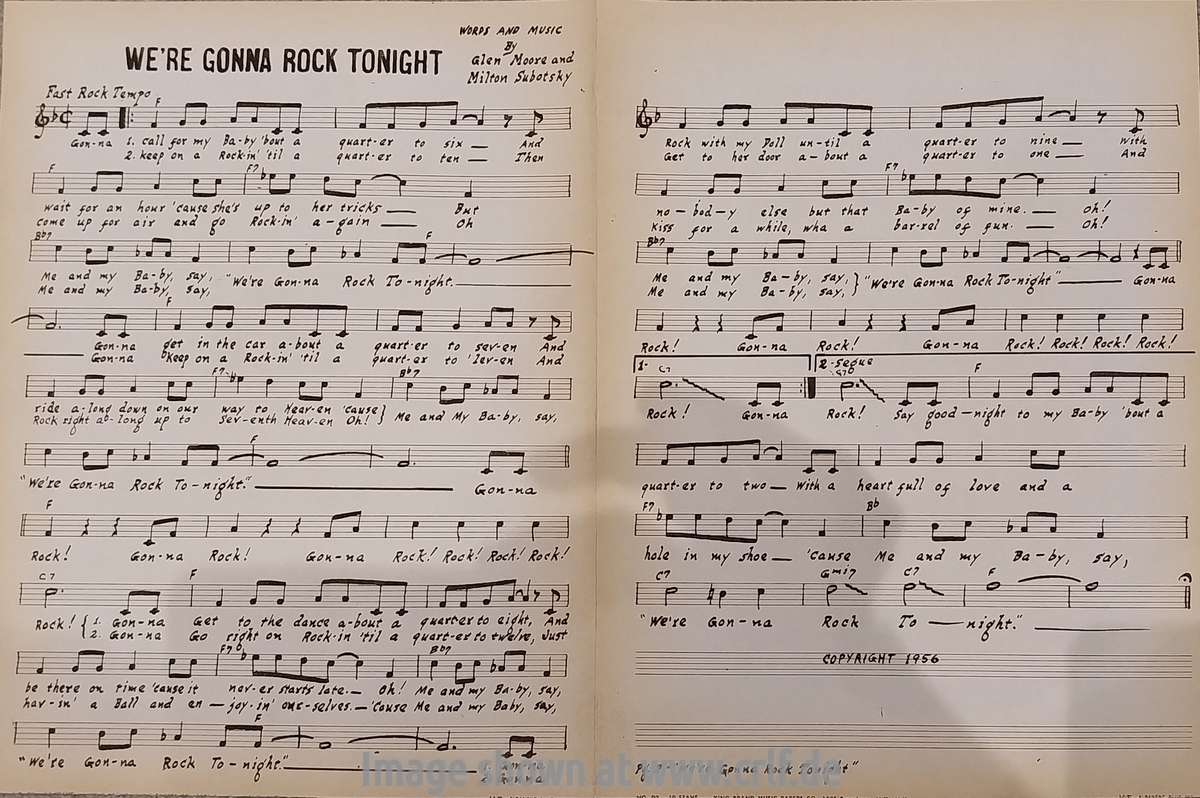 WORDS AND MUSIC
By
WE'RE GONNA ROCK TONIGHT
Glen Moore and
Milton Subotsky
Fast Rock Tempo
F
Gon-na 1. call for my Ba-by 'bout a quart-er to six — And
2. keep on a Rock-in' 'til a quart-er to ten — Then
F F7
wait for an hour 'cause she's up to her tricks — But
come up for air and go Rock-in' a-gain — Oh
Bb7 F
Me and my Ba-by, say, "We're Gon-na Rock To-night.
Me and my Ba-by, say,
F
Gon-na get in the car a-bout a quart-er to sev-en And
Gon-na Keep on a Rock-in' 'til a quart-er to 'lev-en And
F7 Bb7
ride a-long down on our way to Heav-en 'cause } Me and My Ba-by, say,
Rock right a-long up to Sev-enth Heav-en Oh! }
F
"We're Gon-na Rock To-night." Gon-na
F
Rock! Gon-na Rock! Gon-na Rock! Rock! Rock! Rock!
C7 F
Rock! { 1. Gon-na Get to the dance a-bout a quarter to eight, And
2. Gon-na Go right on Rock-in 'til a quart-er to twelve, Just
F7 Bb7
be there on time 'cause it nev-er starts late. — Oh! Me and my Ba-by, say,
hav-in' a Ball and en-joy-in' our-selves. — 'Cause Me and my Baby, say,
F
"We're Gon-na Rock To-night." Gon-na
Rock with my Doll un-til a quart-er to nine — With
Get to her door a-bout a quart-er to one — And
F7
no-bod-y else but that Ba-by of mine. — Oh!
Kiss for a while, wha a bar-rel of fun. — Oh!
Bb7
Me and my Ba-by, say, } "We're Gon-na Rock To-night" — Gon-na
Me and my Ba-by, say,
Rock! Gon-na Rock! Gon-na Rock! Rock! Rock! Rock!
1. 2. segue
C7 C7 F
Rock! Gon-na Rock! Say good-night to my Ba-by 'bout a
quart-er to two — With a heart full of love and a
F7 Bb
hole in my shoe — 'Cause Me and my Ba-by, say,
C7 Gmi7 C7 F
"We're Gon-na Rock To-night."
COPYRIGHT 1956
Gonna Rock Tonight"
Image shown at www.crlf.de